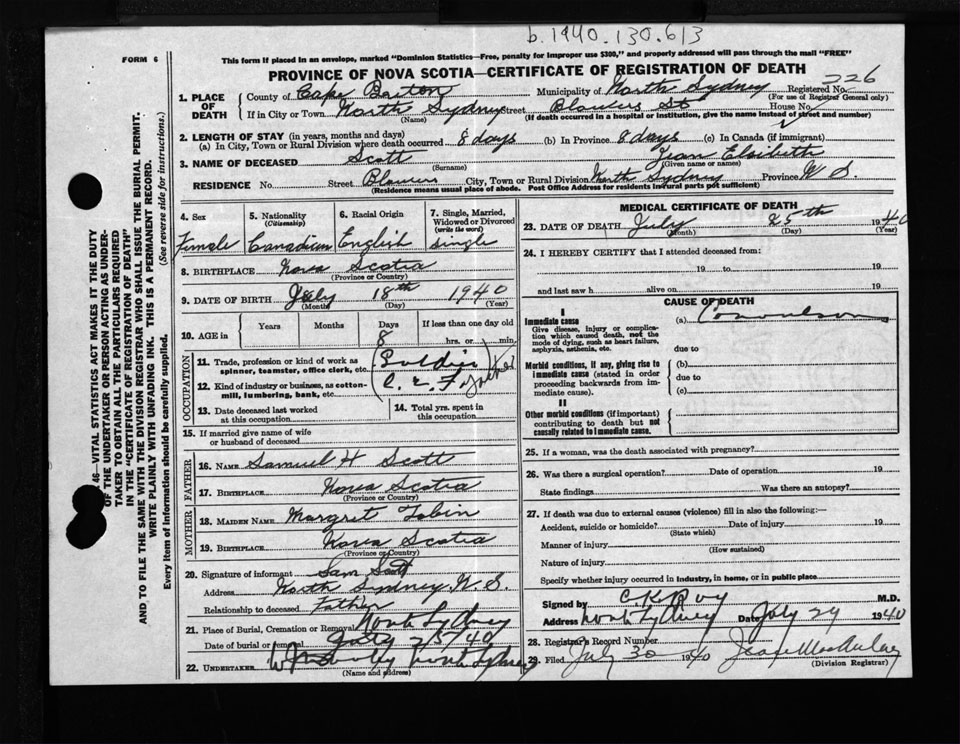 b.1940.130.613
FORM 6
This form if placed in an envelope, marked "Dominion Statistics—Free, penalty for improper use $300," and properly addressed will pass through the mail "FREE"
PROVINCE OF NOVA SCOTIA—CERTIFICATE OF REGISTRATION OF DEATH
226
1. PLACE OF DEATH
County of Cape Breton Municipality of North Sydney Registered No.
(For use of Registrar General only)
If in City or Town North Sydney Street Blowers St House No.
(Name) (If death occurred in a hospital or institution, give the name instead of street and number)
2. LENGTH OF STAY (in years, months and days)
(a) In City, Town or Rural Division where death occurred 8 days (b) In Province 8 days (c) In Canada (if immigrant)
3. NAME OF DECEASED Scott Jean Elsibeth
(Surname) (Given name or names)
RESIDENCE No. Street Blowers City, Town or Rural Division North Sydney Province N S.
(Residence means usual place of abode. Post Office Address for residents in rural parts not sufficient)
46—VITAL STATISTICS ACT MAKES IT THE DUTY
OF THE UNDERTAKER OR PERSON ACTING AS UNDER-
TAKER TO OBTAIN ALL THE PARTICULARS REQUIRED
IN THE "CERTIFICATE OF REGISTRATION OF DEATH"
AND TO FILE THE SAME WITH THE DIVISION REGISTRAR WHO SHALL ISSUE THE BURIAL PERMIT.
WRITE PLAINLY WITH UNFADING INK. THIS IS A PERMANENT RECORD.
Every item of information should be carefully supplied. (See reverse side for instructions.)
4. Sex
Female
5. Nationality
(Citizenship)
Canadian
6. Racial Origin
English
7. Single, Married,
Widowed or Divorced
(write the word)
single
8. BIRTHPLACE Nova Scotia
(Province or Country)
9. DATE OF BIRTH July 18th 1940
(Month) (Day) (Year)
10. AGE in Years Months Days If less than one day old
8 hrs. or min.
OCCUPATION
11. Trade, profession or kind of work as
spinner, teamster, office clerk, etc. Soldier
12. Kind of industry or business, as cotton-
mill, lumbering, bank, etc. father
13. Date deceased last worked
at this occupation
14. Total yrs. spent in
this occupation
15. If married give name of wife
or husband of deceased
FATHER
16. NAME Samuel H Scott
17. BIRTHPLACE Nova Scotia
(Province or Country)
MOTHER
18. MAIDEN NAME Margret Tobin
19. BIRTHPLACE Nova Scotia
(Province or Country)
20. Signature of informant Sam Scott
Address North Sydney N. S.
Relationship to deceased Father
21. Place of Burial, Cremation or Removal North Sydney
Date of burial or removal July 25/40
22. UNDERTAKER North Sydney
(Name and address)
MEDICAL CERTIFICATE OF DEATH
23. DATE OF DEATH July 25th 1940
(Month) (Day) (Year)
24. I HEREBY CERTIFY that I attended deceased from:
19 to 19
and last saw h alive on 19
CAUSE OF DEATH
I
Immediate cause (a) Convulsions
Give disease, injury or complica-
tion which caused death, not the
mode of dying, such as heart failure,
asphyxia, asthenia, etc.
due to
Morbid conditions, if any, giving rise to
immediate cause (stated in order
proceeding backwards from im-
mediate cause).
(b)
due to
(c)
II
Other morbid conditions (if important)
contributing to death but not
causally related to immediate cause.
25. If a woman, was the death associated with pregnancy?
26. Was there a surgical operation? Date of operation 19
State findings Was there an autopsy?
27. If death was due to external causes (violence) fill in also the following:—
Accident, suicide or homicide? Date of injury 19
(State which)
Manner of injury
(How sustained)
Nature of injury
Specify whether injury occurred in industry, in home, or in public place
Signed by C K Roy M.D.
Address North Sydney Date July 29 1940
28. Registrar's Record Number
29. Filed July 30 1940 Jean MacAulay
(Division Registrar)